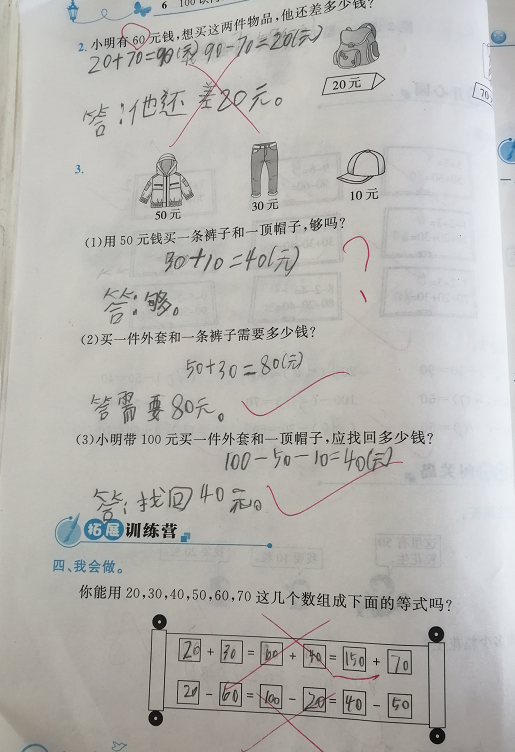 6 100
2. 小明有60元钱,想买这两件物品,他还差多少钱?
20+70=90(元) 90-70=20(元)
20元
70
答:他还差20元。
3.
50元 30元 10元
(1)用50元钱买一条裤子和一顶帽子,够吗?
30+10=40(元)
答:够。
(2)买一件外套和一条裤子需要多少钱?
50+30=80(元)
答需要80元。
(3)小明带100元买一件外套和一顶帽子,应找回多少钱?
100-50-10=40(元)
答:找回40元。
拓展训练营
四、我会做。
你能用20,30,40,50,60,70这几个数组成下面的等式吗?
20+30=60+40=150+70
20-60=100-20=40-50